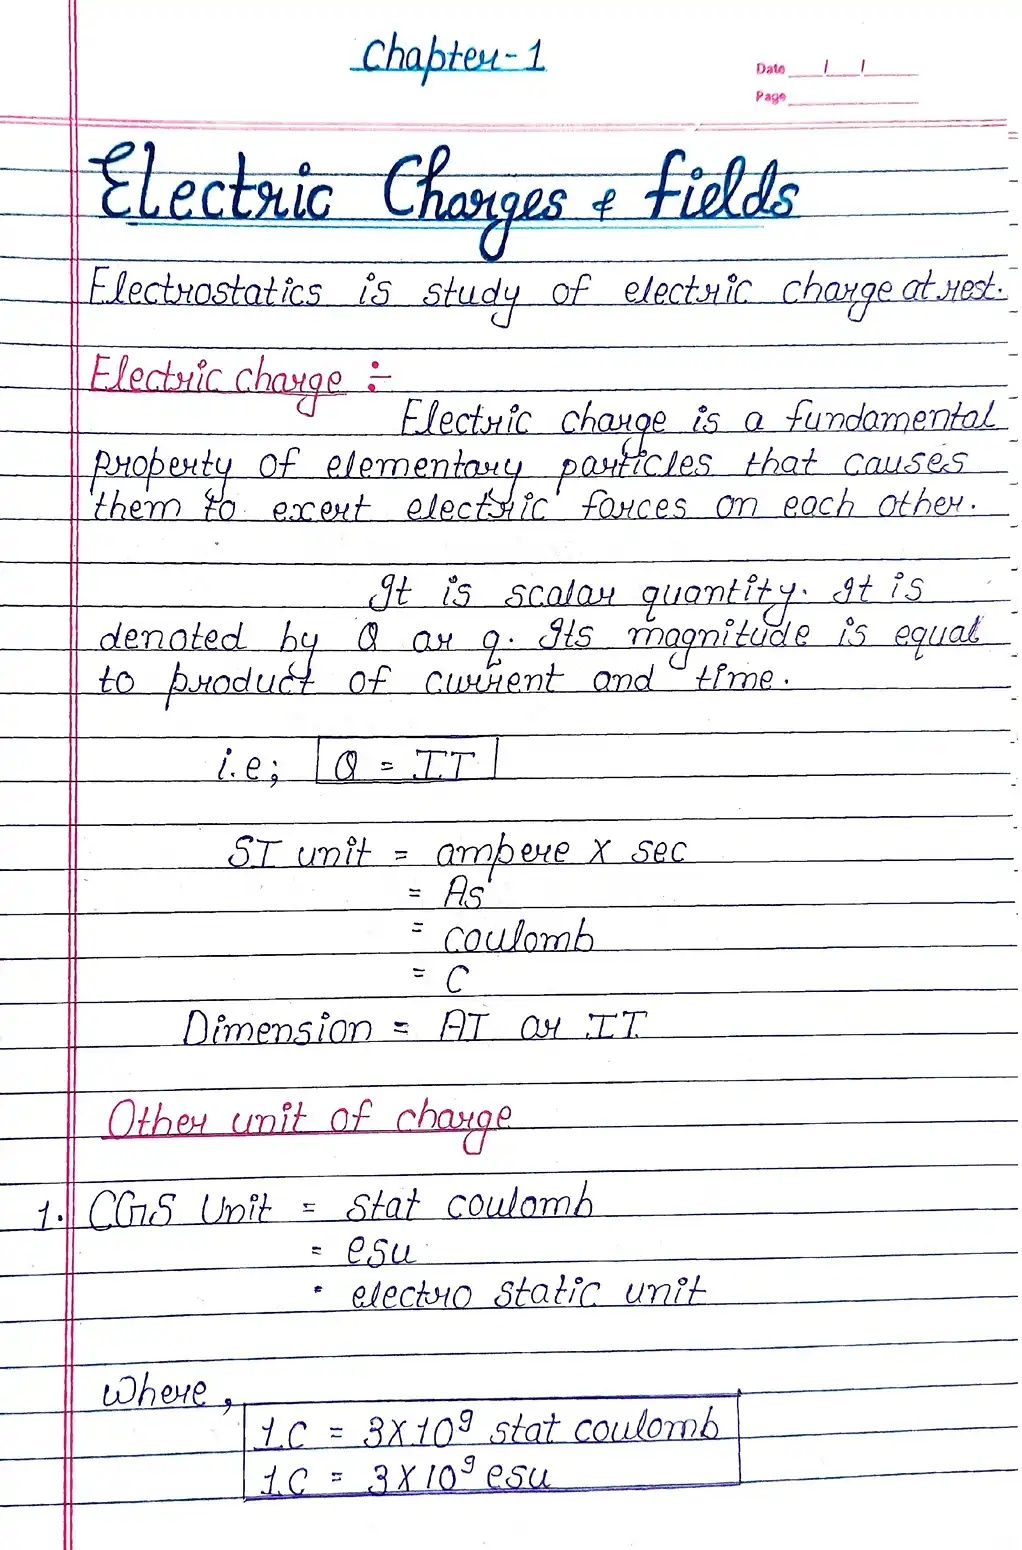 Chapter-1
Date / /
Page
Electric Charges & fields
Electrostatics is study of electric charge at rest.
Electric charge :-
Electric charge is a fundamental
property of elementary particles that causes
them to exert electric forces on each other.
It is scalar quantity. It is
denoted by Q or q. Its magnitude is equal
to product of current and time.
i.e; Q = IT
SI unit = ampere X sec
= As
= coulomb
= C
Dimension = AT or IT
Other unit of charge
1. CGS Unit = stat coulomb
= esu
= electro static unit
where,
1C = 3X10⁹ stat coulomb
1C = 3X10⁹ esu